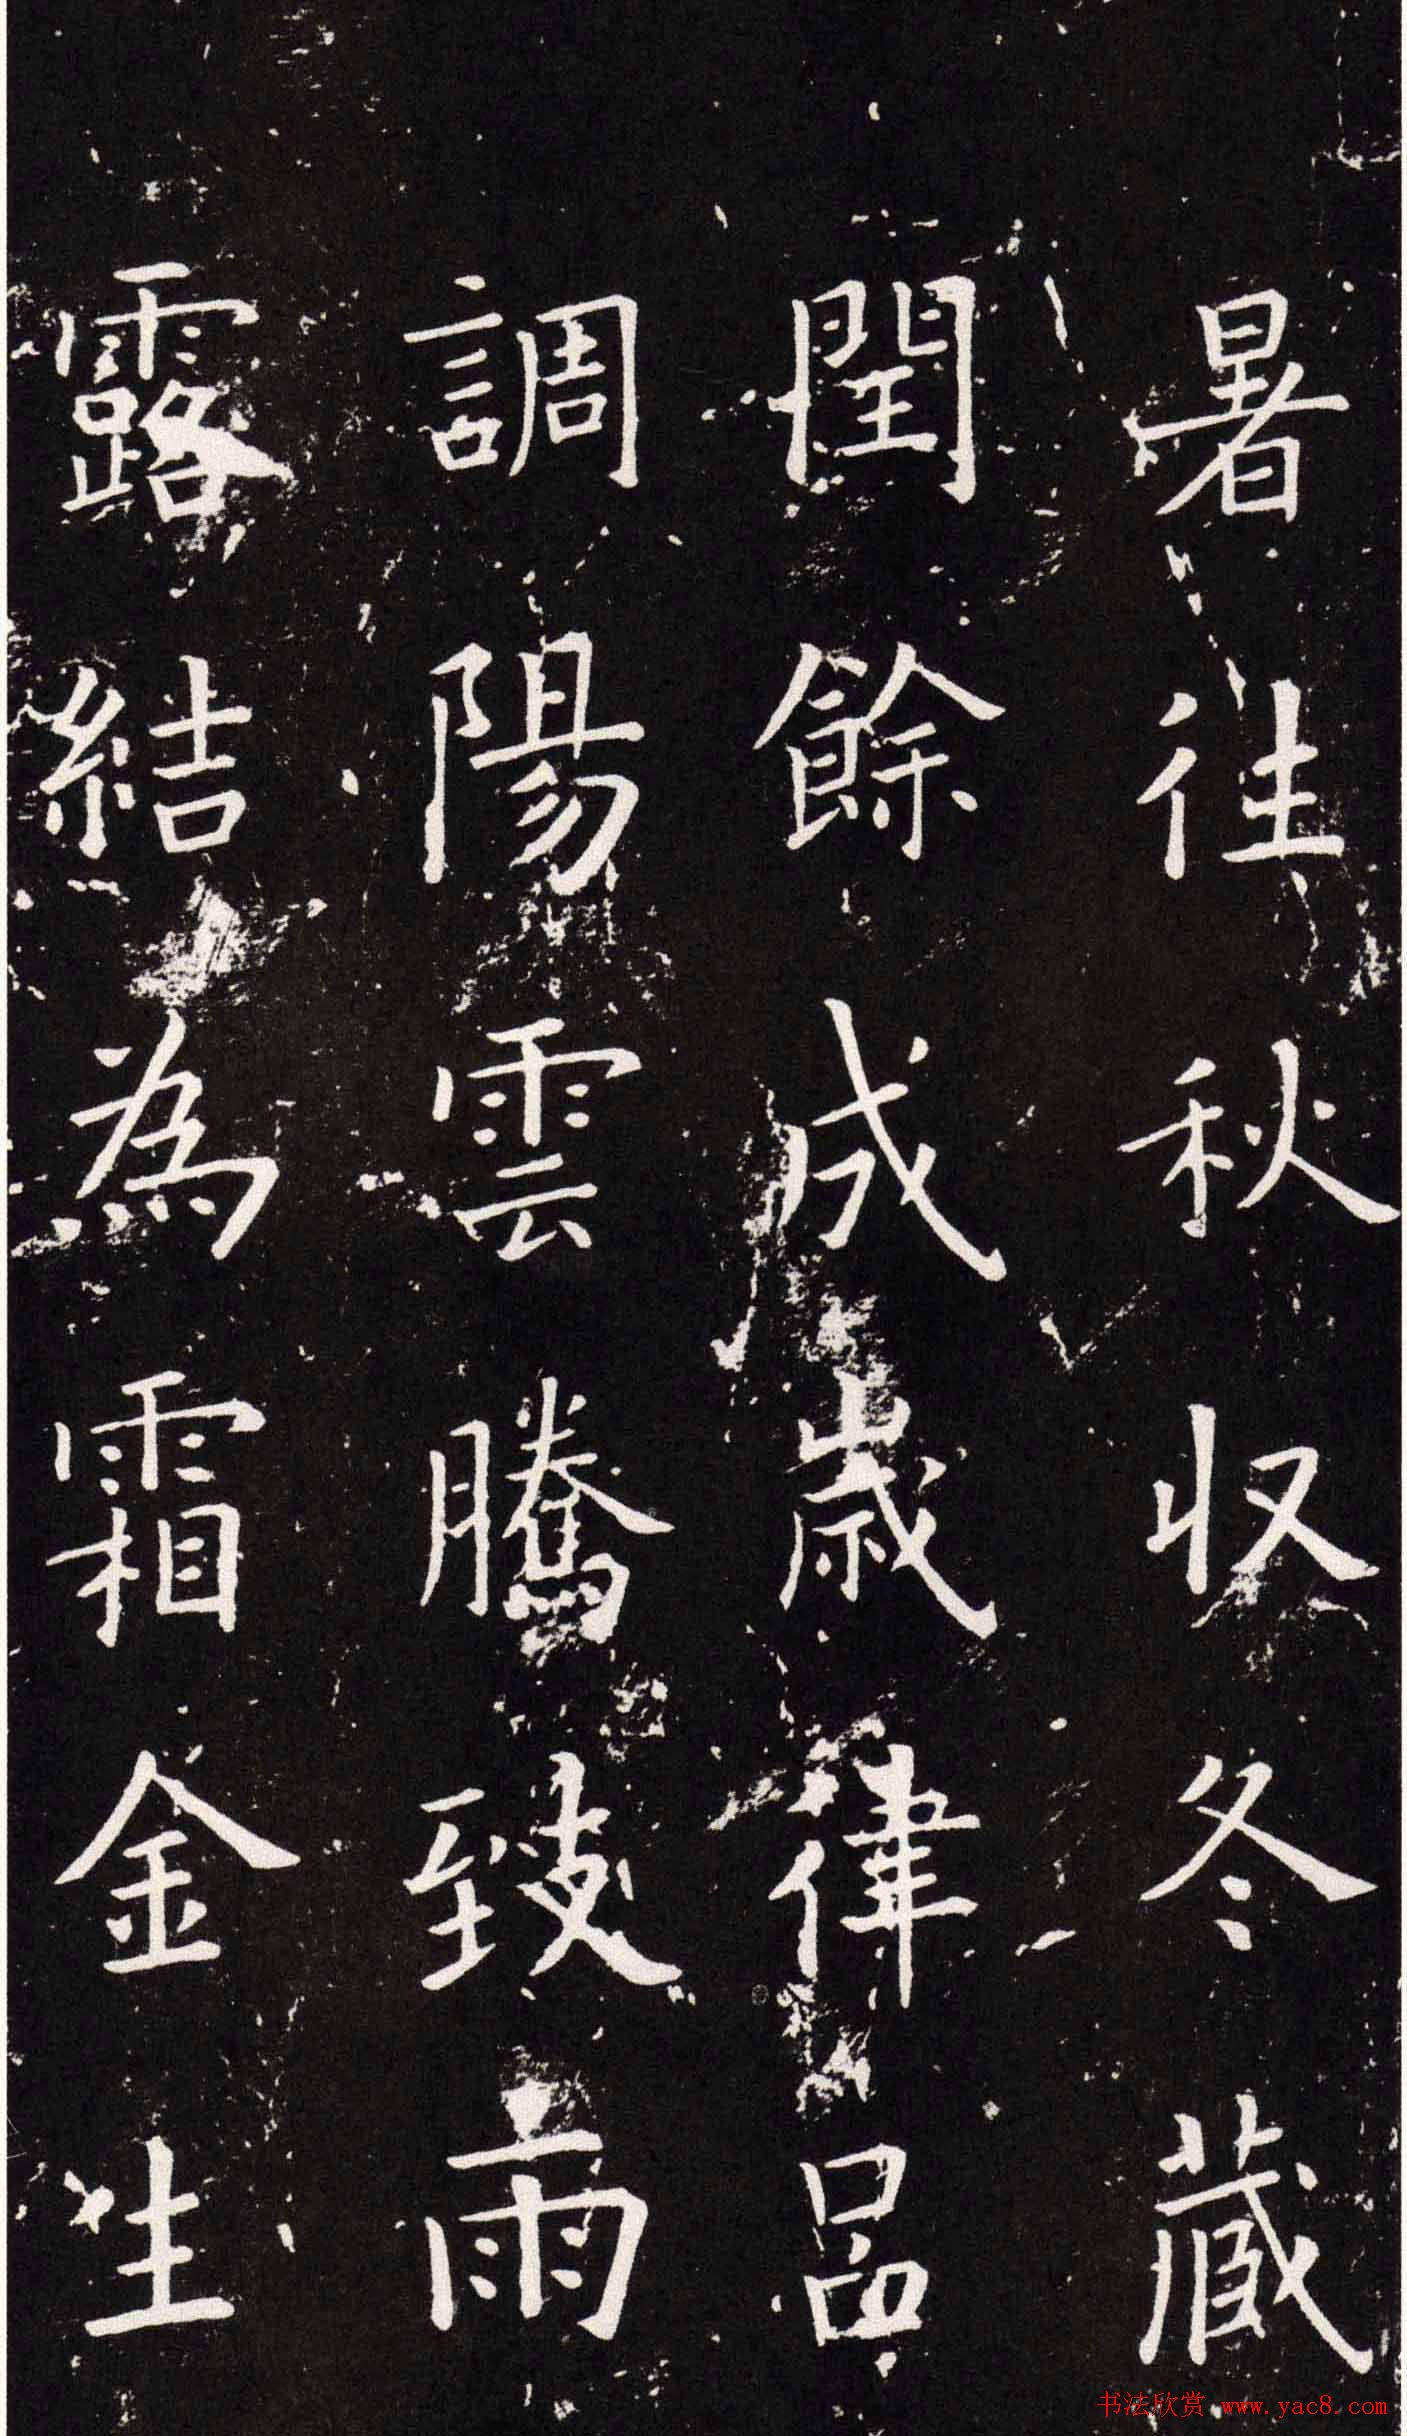 暑往秋收冬藏
閏餘成歲律呂
調陽雲騰致雨
露結為霜金生
书法欣赏 www.yac8.com